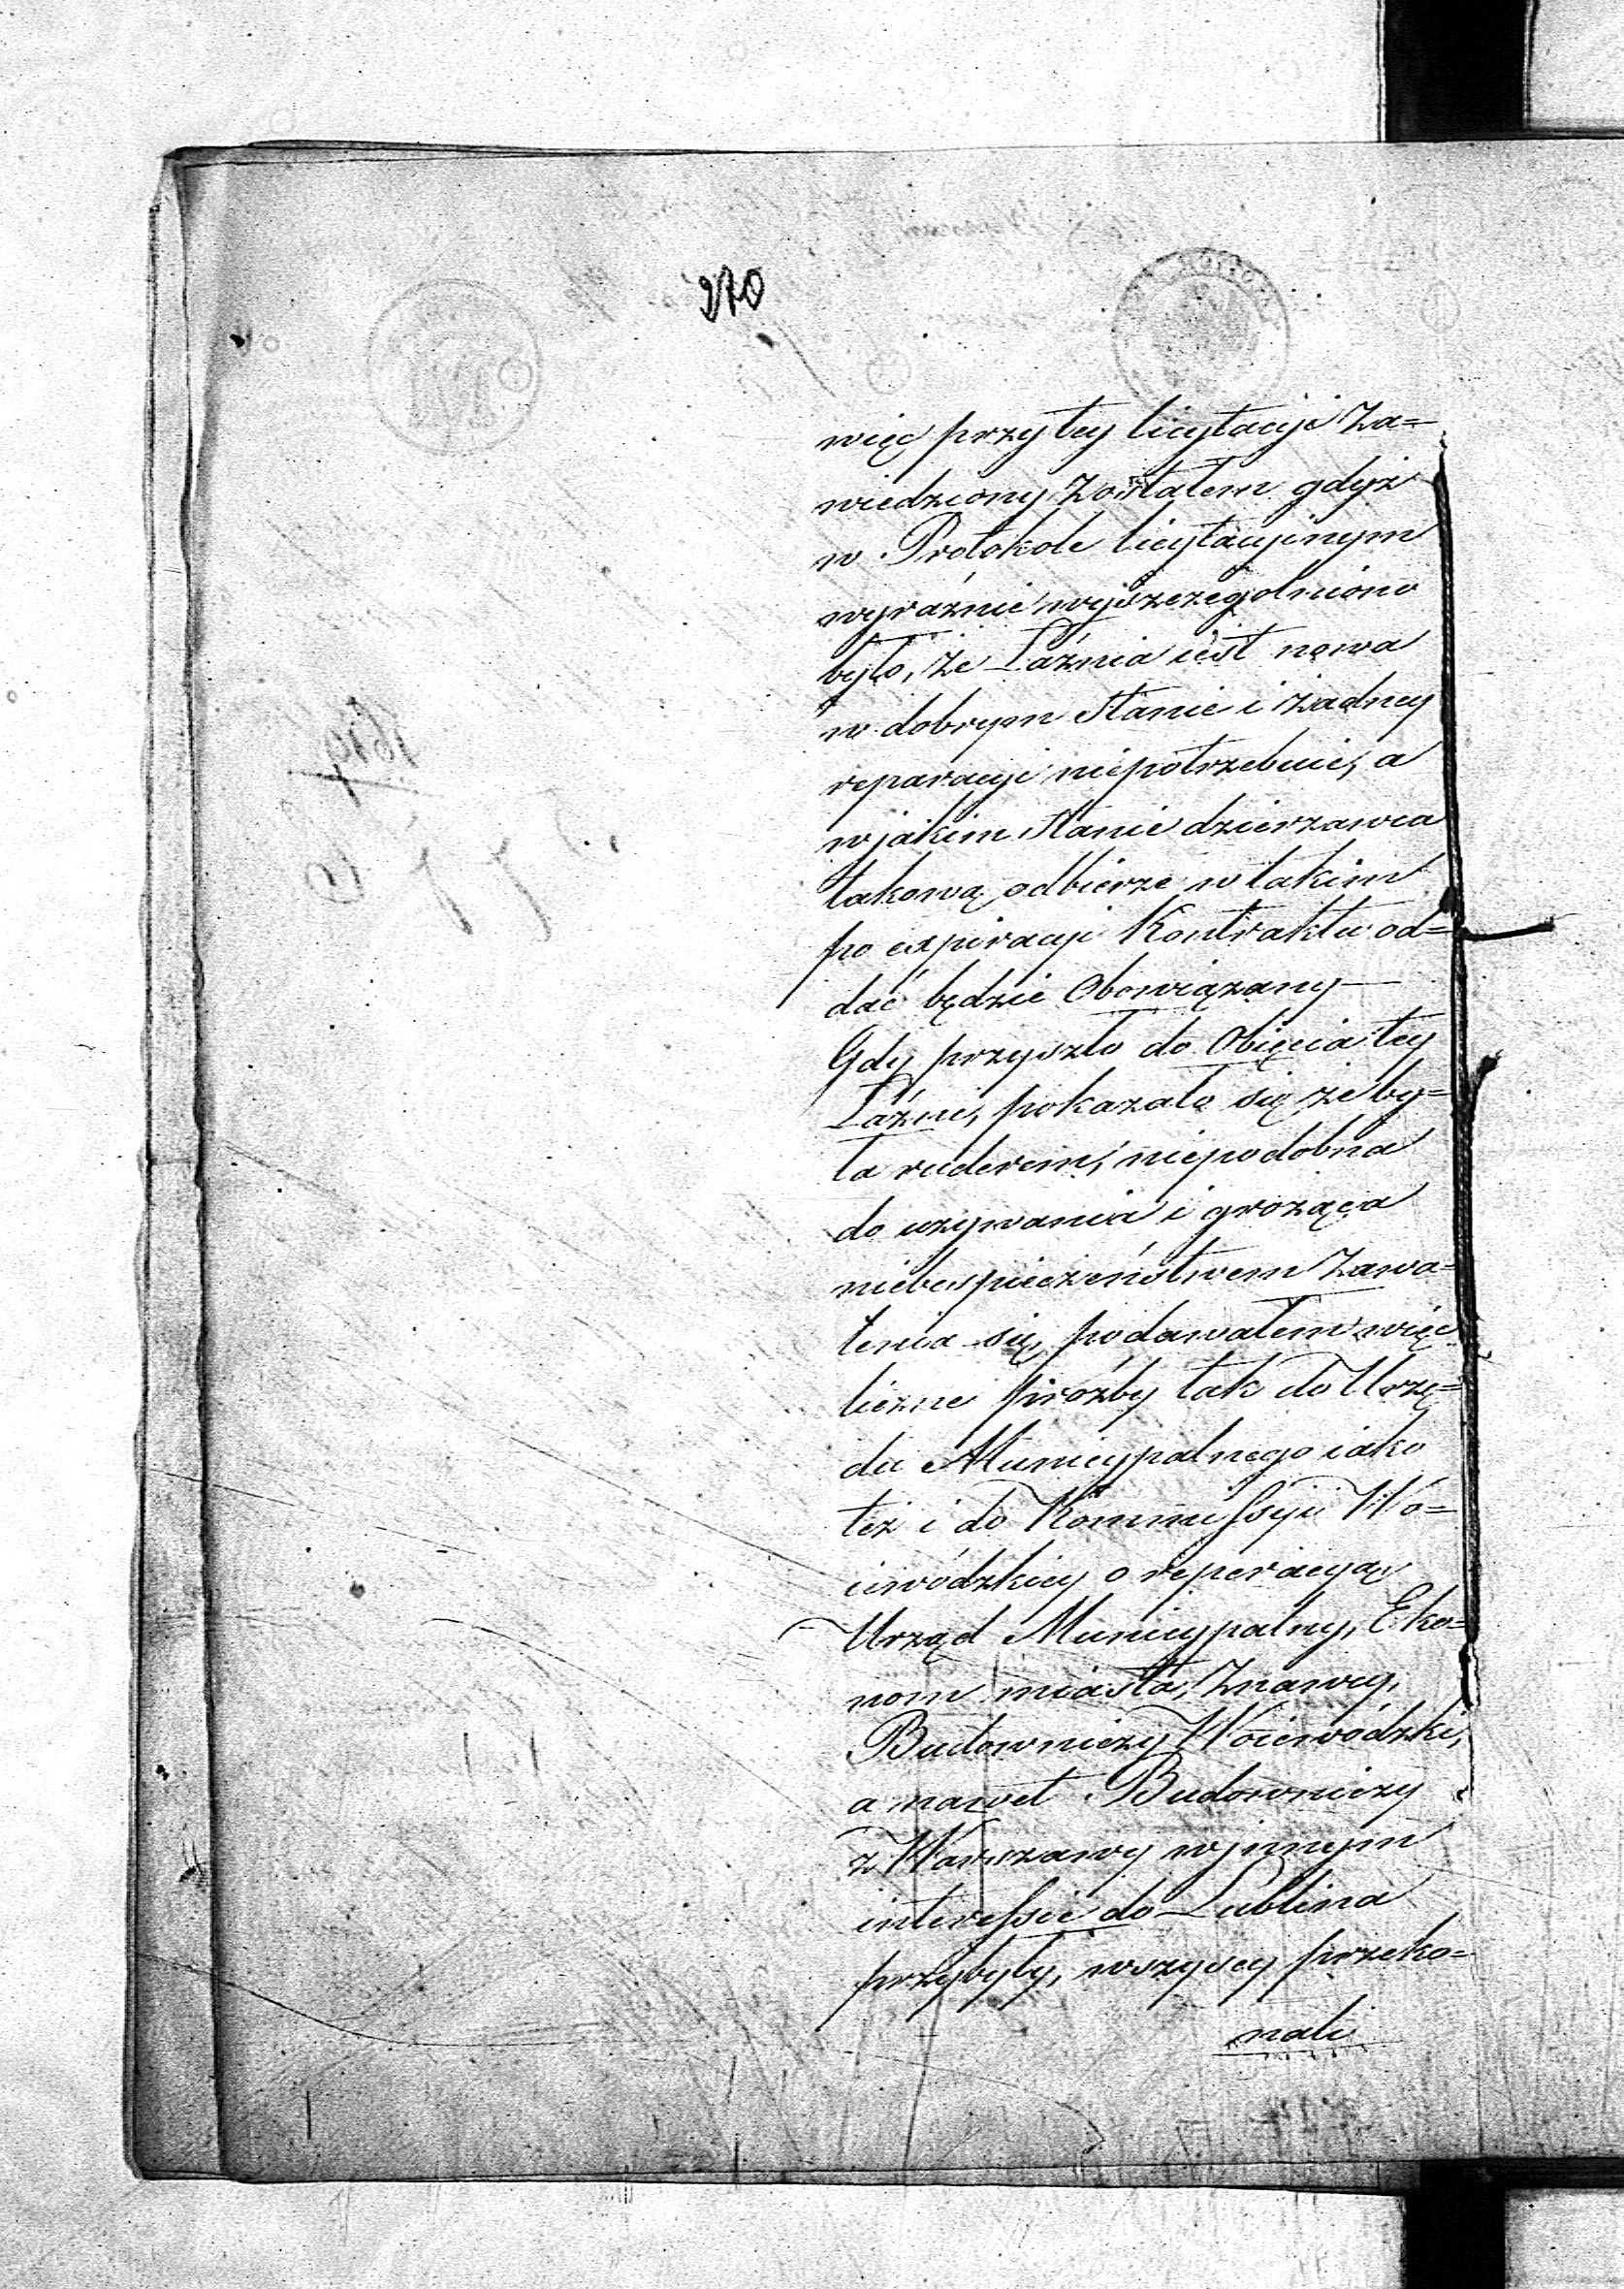 270
więc przy tey licytacyi za=
wiedziony zostałem gdyż
w Protokole licytacyinym
wyraźnie wyszczegolniono
było, że Łaźnia iest nowa
w dobrym stanie i żadney
reparacyi niepotrzebuie, a
w jakim stanie dzierzawca
takową odbierze w takim
po expiracyi Kontraktu od=
dać będzie Obowiązany —
Gdy przyszło do Obięcia tey
Łaźni, pokazało się że by=
ła ruderem, niepodobna
do uzywania i grożąca
niebespieczeństwem zawa=
lenia się, podawałem więc
liczne prozby tak do Urzę=
du Municypalnego iako
też i do Kommissyi Wo=
iewódzkiey o reperacyą
Urząd Municypalny, Eko=
nom miasta, Znawcy,
Budowniczy Woiewódzki,
a nawet Budowniczy
z Warszawy w innym
interessie do Lublina
przybyły, wszyscy przeko=
nali